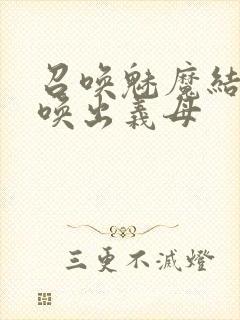 召喚魅魔結
喚出義母
三更不滅燈